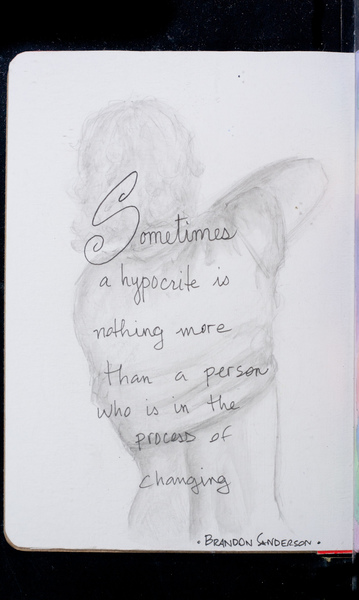 Sometimes
a hypocrite is
nothing more
than a person
who is in the
process of
changing
• BRANDON SANDERSON •